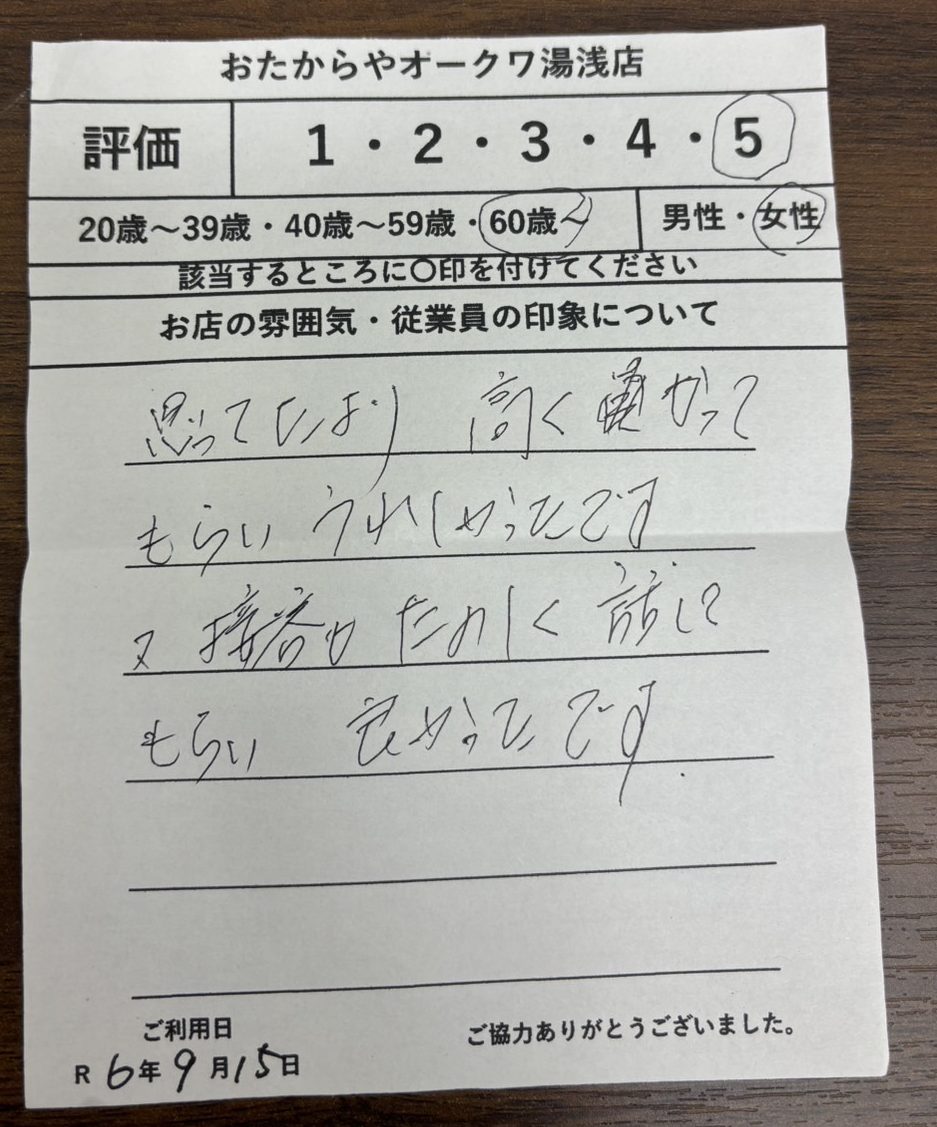 おたからやオークワ湯浅店
評価 1・2・3・4・5
20歳～39歳・40歳～59歳・60歳～ 男性・女性
該当するところに〇印を付けてください
お店の雰囲気・従業員の印象について
思ってたより 高く かって
もらい うれしかったです
又 接客も たのしく 話して
もらい 良かったです
ご利用日 ご協力ありがとうございました。
R 6年 9月 15日